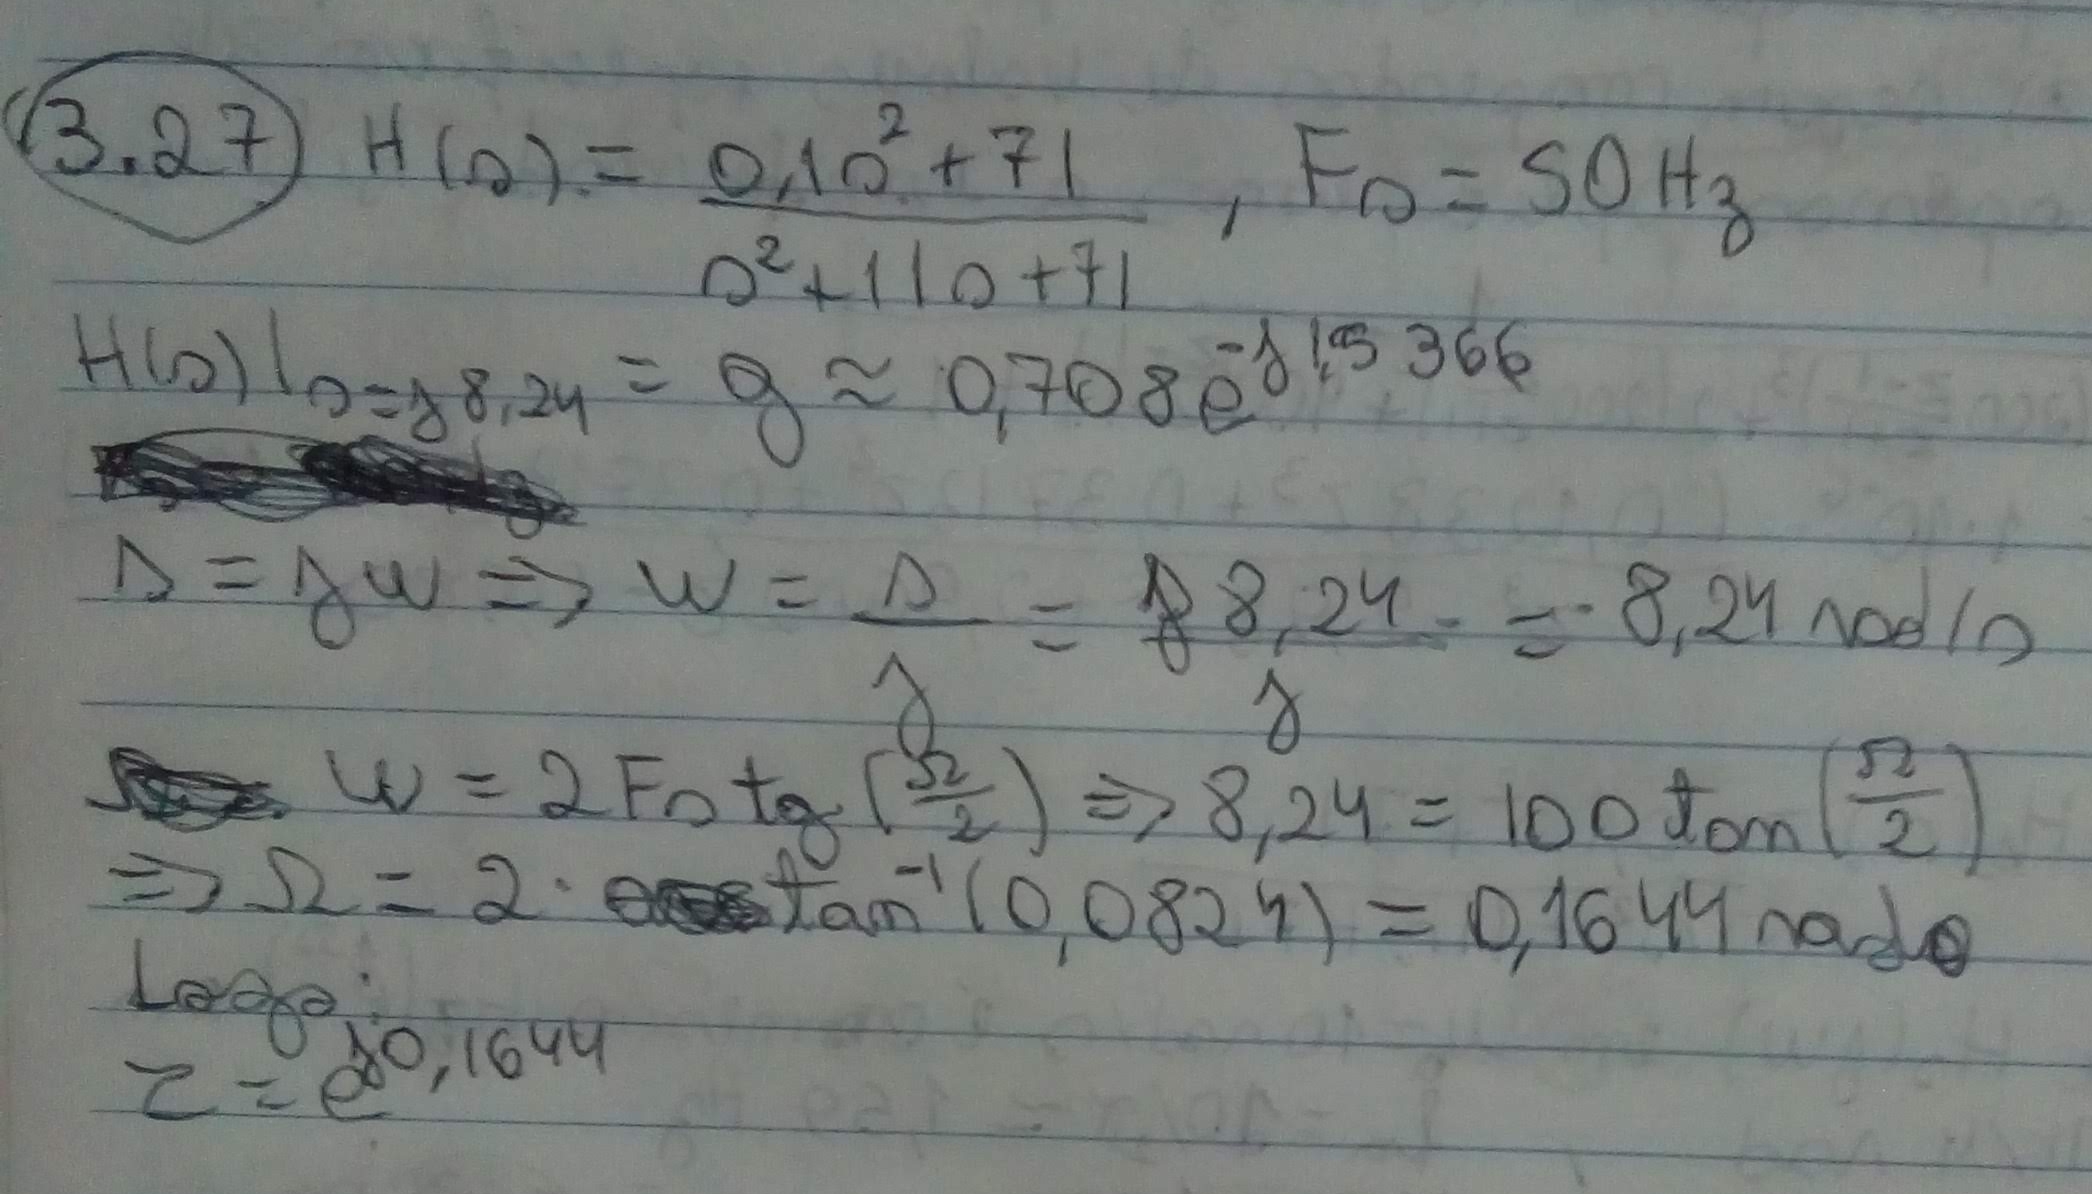 3.27 H(s) = (0,1s² + 71)/(s² + 11s + 71) , Fs = 50Hz
H(s)|s=j8,24 = g ≈ 0,708e^-j1,5366
s = jw => w = s/j = j8,24/j = 8,24 rad/s
w = 2Fs tg(Ω/2) => 8,24 = 100 tan(Ω/2)
=> Ω = 2 · tan⁻¹(0,0824) = 0,1644 rads
Logo:
z = e^j0,1644